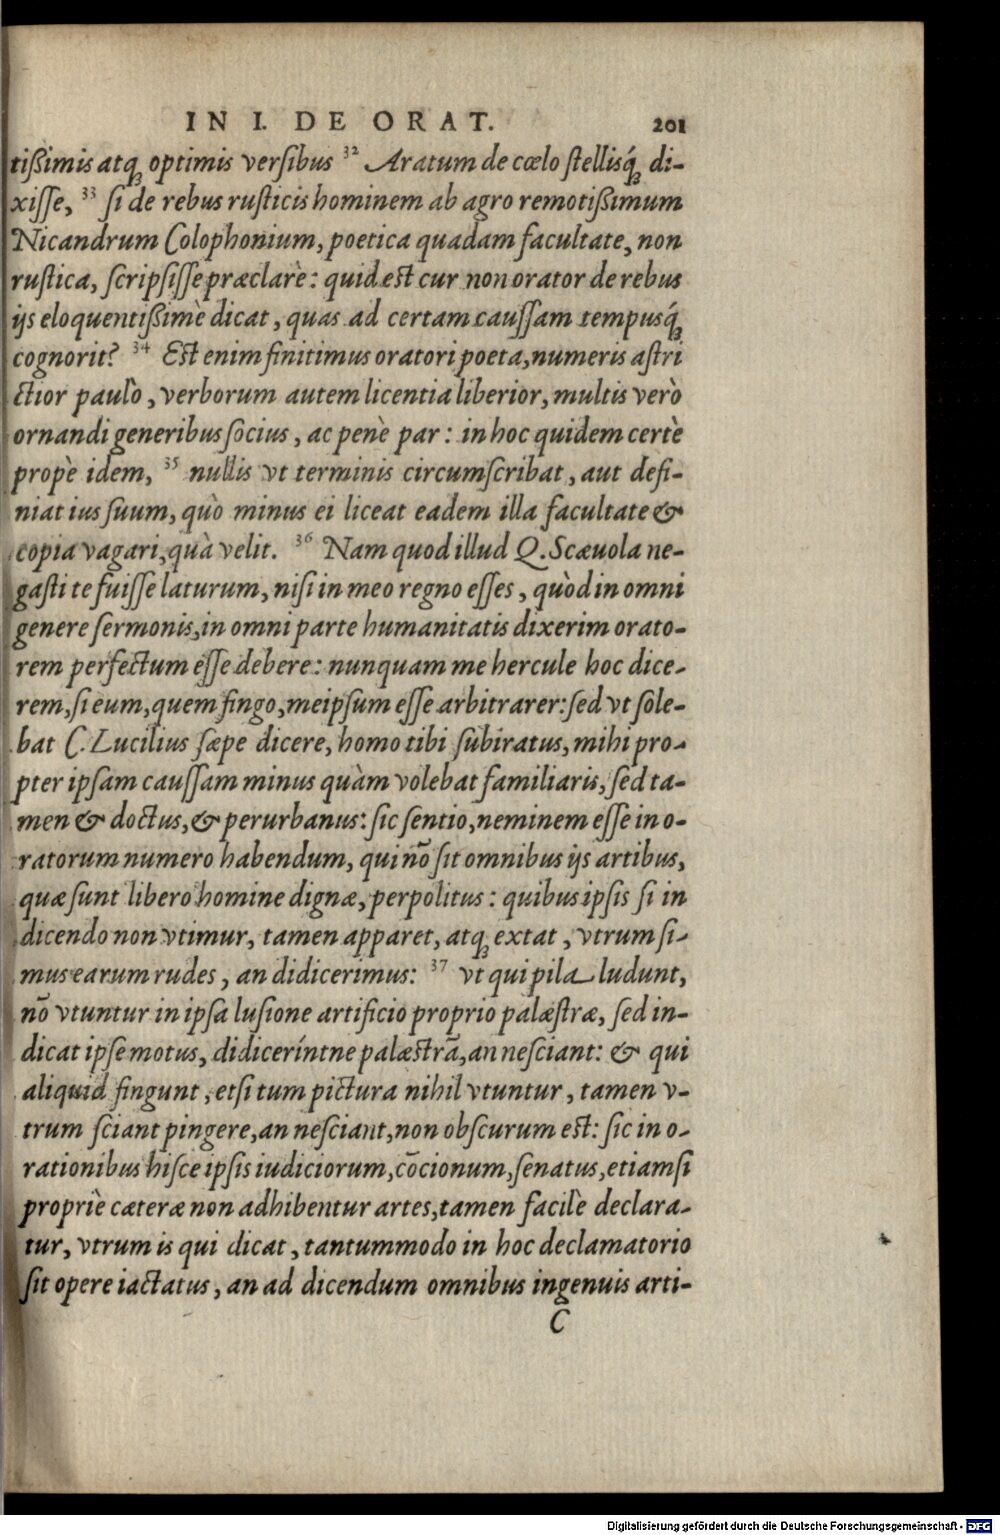 IN I. DE ORAT. 201
tißimis atq̃ optimis versibus 32 Aratum de cœlo stellisq́ꝫ di-
xisse, 33 si de rebus rusticis hominem ab agro remotißimum
Nicandrum Colophonium, poetica quadam facultate, non
rustica, scripsisse præclarè: quid est cur non orator de rebus
ijs eloquentißimè dicat, quas ad certam caussam tempusq́ꝫ
cognorit? 34 Est enim finitimus oratori poeta, numeris astri
ctior paulò, verborum autem licentia liberior, multis verò
ornandi generibus socius, ac penè par: in hoc quidem certè
propè idem, 35 nullis vt terminis circumscribat, aut defi-
niat ius suum, quò minus ei liceat eadem illa facultate &
copia vagari, quà velit. 36 Nam quod illud Q. Scæuola ne-
gasti te fuisse laturum, nisi in meo regno esses, quòd in omni
genere sermonis, in omni parte humanitatis dixerim orato-
rem perfectum esse debere: nunquam me hercule hoc dice-
rem, si eum, quem fingo, meipsum esse arbitrarer: sed vt sole-
bat C. Lucilius sæpe dicere, homo tibi subiratus, mihi pro-
pter ipsam caussam minus quàm volebat familiaris, sed ta-
men & doctus, & perurbanus: sic sentio, neminem esse in o-
ratorum numero habendum, qui nō sit omnibus ijs artibus,
quæ sunt libero homine dignæ, perpolitus: quibus ipsis si in
dicendo non vtimur, tamen apparet, atqꝫ extat, vtrum si-
mus earum rudes, an didicerimus: 37 vt qui pila ludunt,
nō vtuntur in ipsa lusione artificio proprio palæstræ, sed in-
dicat ipse motus, didicerínt ne palæstrā, an nesciant: & qui
aliquid fingunt, etsi tum pictura nihil vtuntur, tamen v-
trum sciant pingere, an nesciant, non obscurum est: sic in o-
rationibus hisce ipsis iudiciorum, cōcionum, senatus, etiamsi
propriè cæteræ non adhibentur artes, tamen facilè declara-
tur, vtrum is qui dicat, tantummodo in hoc declamatorio
sit opere iactatus, an ad dicendum omnibus ingenuis arti-
C
Digitalisierung gefördert durch die Deutsche Forschungsgemeinschaft - DFG